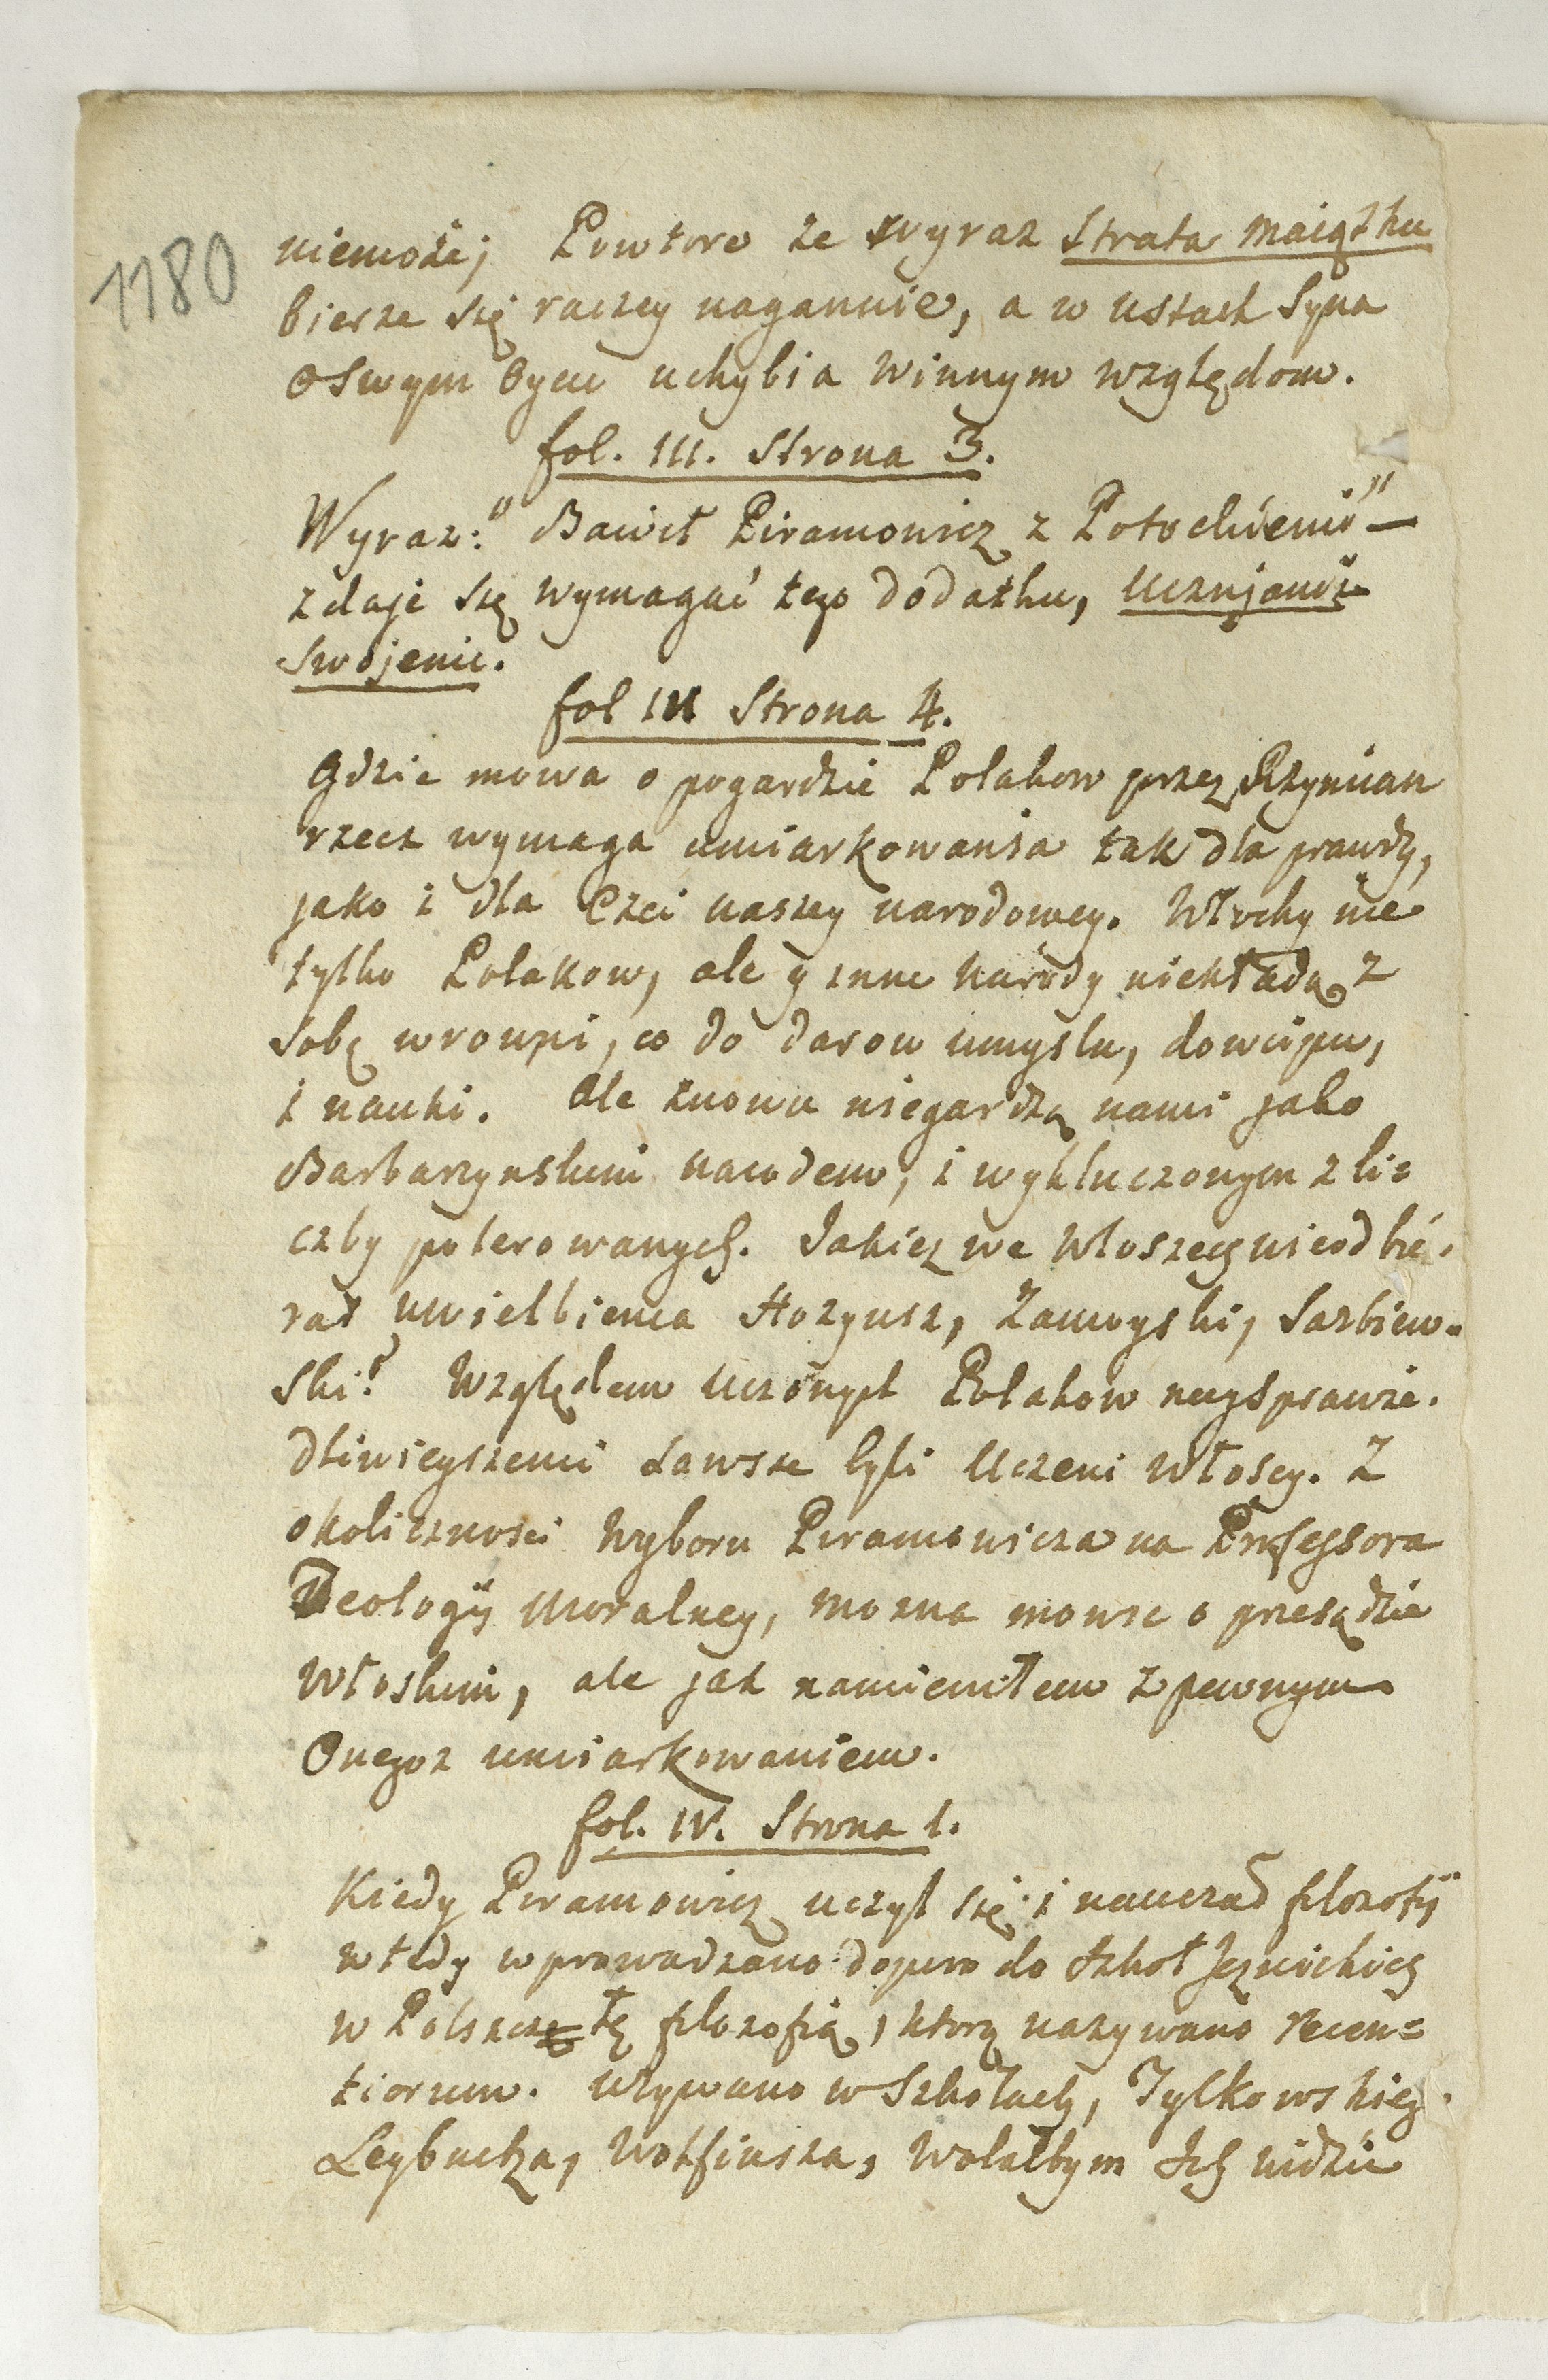 1180
niemoże; Powtore że wyraz Strata maiątku
bierze się raczey nagannie, a w ustach Syna
o Swym Oycu uchybia winnym względom.
fol. III. Strona 3.
Wyraz: "Bawił Piramowicz z Potockiemi" —
zdaje się wymagać tego dodatku, Uczniami
Swojemi.
fol III Strona 4.
Gdzie mowa o pogardzie Polakow przez Rzymian
rzecz wymaga umiarkowania tak dla prawdy,
jako i dla Czci naszey narodowey. Włochy nie
tylko Polakow, ale y inne Narody niekładą z
Sobą wrowni, co do darow umysłu, dowcipu,
i nauki. Ale znowu niegardzą nami jako
Barbarzynskim narodem, i wykluczonym z li=
czby polerowanych. Jakież we Włoszech nieodbie-
rał uwielbienia Hozyusz, Zamoyski, Sarbiew-
ski? Względem Uczonych Polakow naysprawie-
dliwieyszemi zawsze byli Uczeni Włoscy. Z
okoliczności wyboru Piramowicza na Professora
Teologij Moralney, można mowic o przesądzie
Włoskim, ale jak namieniłem z pewnym
Onegoż umiarkowaniem.
fol. IV. Strona 1.
Kiedy Piramowicz uczył się i nauczał filozofij
wtedy wprowadzano dopiero do Szkoł Jezuickich
w Polszcze tę filozofią, ktorą nazywano recen=
tiorum. Używano w Szkołach, Tylkowskieg
Leybnitza, Wolfiusza, Wolałbym Ich nidzie